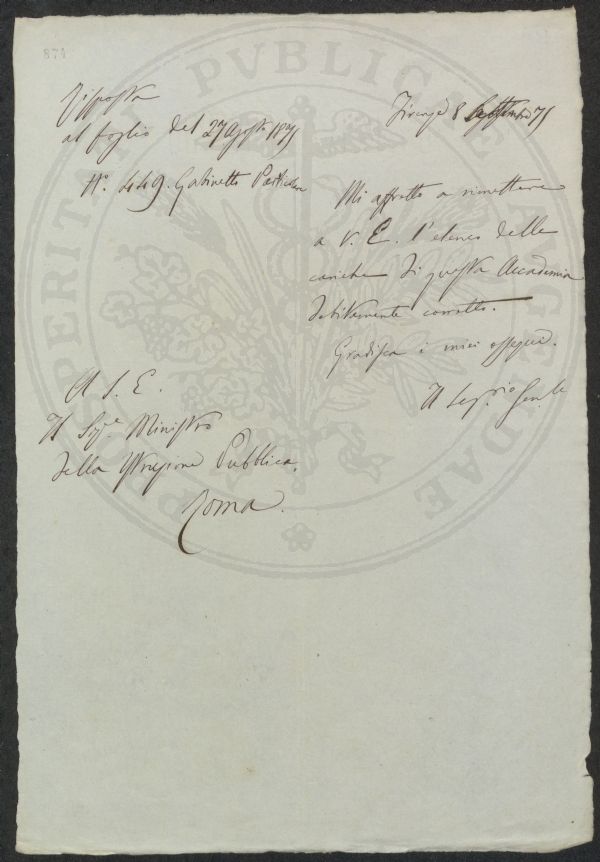 874
Risposta
al foglio del 27 Agosto 1871
N.º 449. Gabinetto Particolare
Firenze 8 Settembre 71
Mi affretto a rimettere
a V. E. l'elenco delle
cariche di questa Accademia
debitamente corretto.
Gradisca i miei ossequi.
Il Seg.rio Gen.le
A S. E.
Il Sig.re Ministro
della Istruzione Pubblica.
Roma.
PROSPERITATI PVBLICAE AVGENDAE